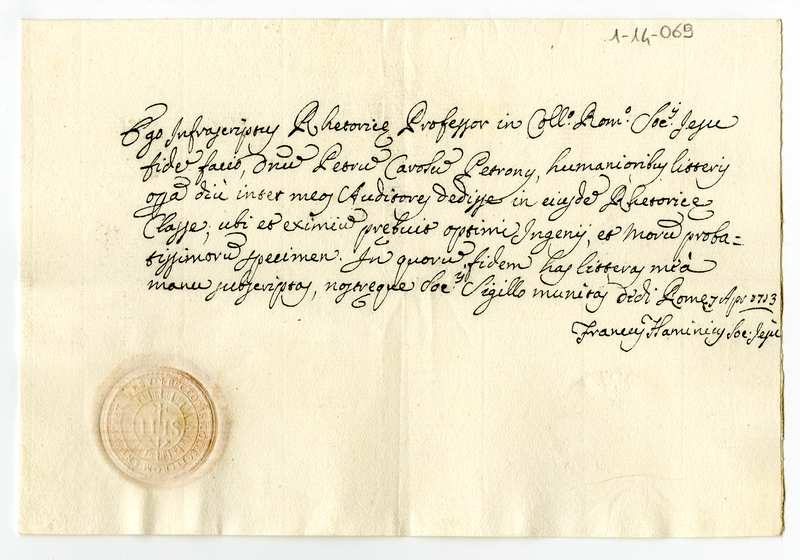 1-14-069
Ego Infrascriptus Rhetoricę Professor in Coll.º Rom.º Soc.ʸ Jesu
fidē facio, dnū Petrū Carolū Petrony, humanioribus litteris
opā diù inter meos Auditores dedisse in eiusdē Rhetoricę
Classe; ubi et eximiū prębuit optimi Ingenij, et Morū proba=
tissimorū specimen. In quorū fidem has litteras meâ
manu subscriptas, nostręque Soc.ʸ Sigillo munitas dedi Romę 7 Apr 1713
Francus Flaminius Soc. Jesu
IHS